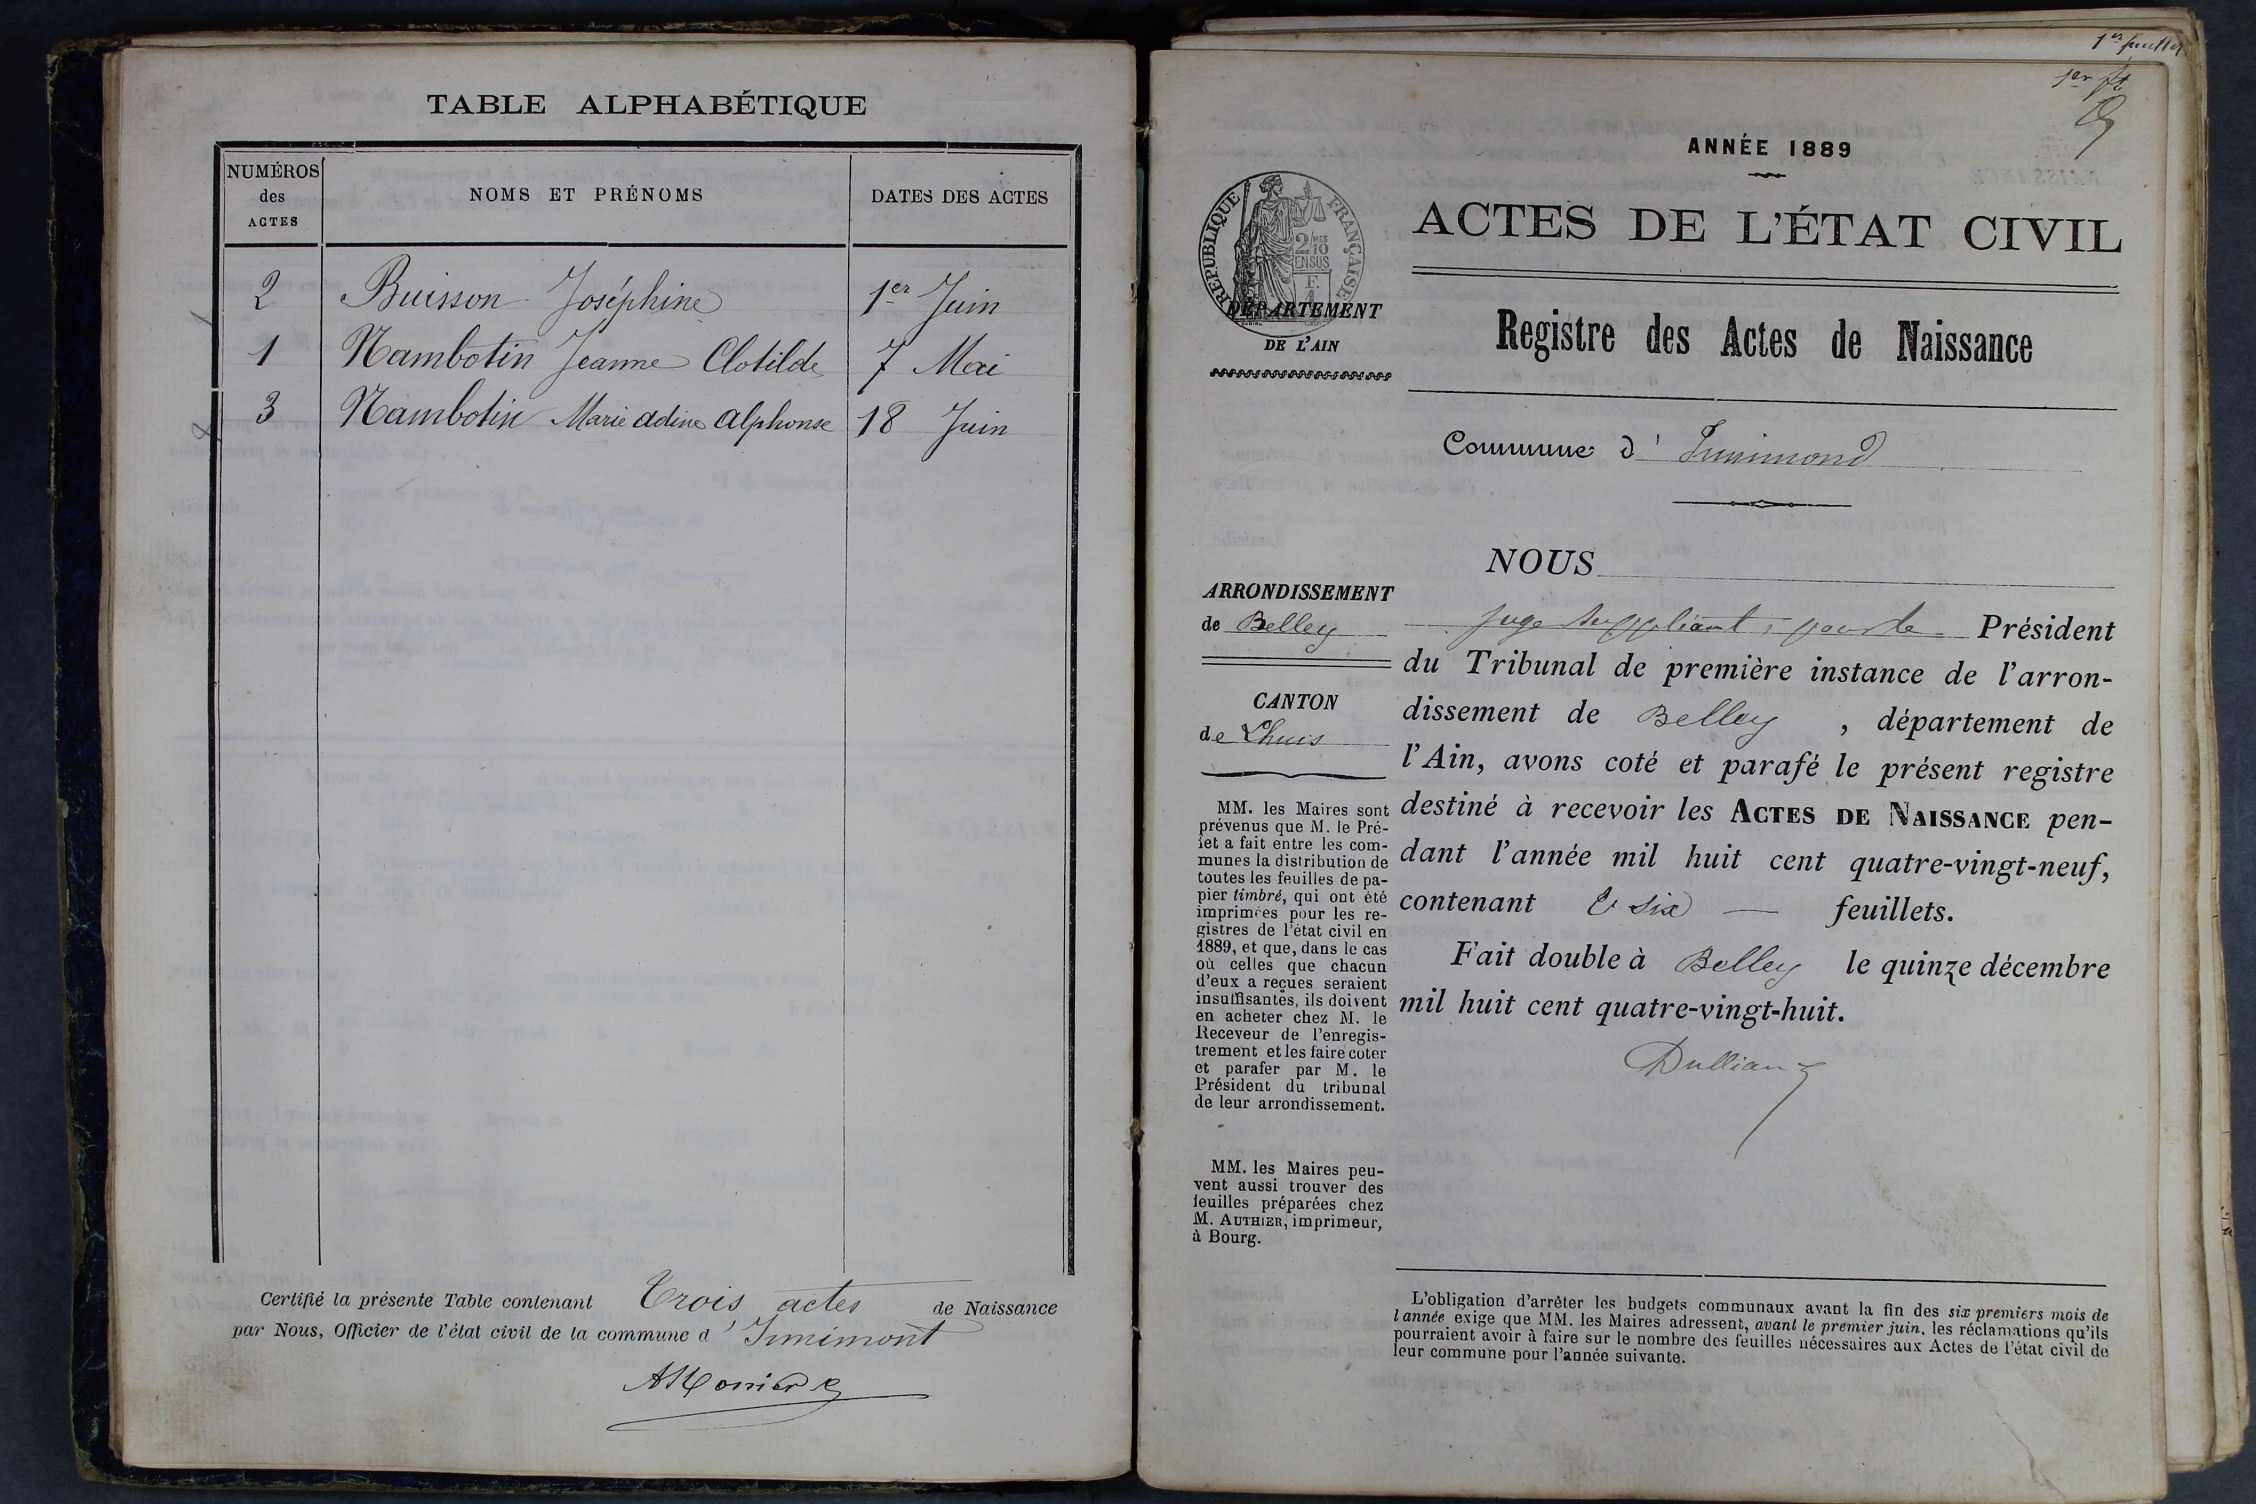 TABLE ALPHABÉTIQUE
NUMÉROS des ACTES
NOMS ET PRÉNOMS
DATES DES ACTES
2 Buisson Joséphine 1er Juin
1 Nambotin Jeanne Clotilde 7 Mai
3 Nambotin Marie adine alphonse 18 Juin
Certifié la présente Table contenant Trois actes de Naissance
par Nous, Officier de l'état civil de la commune d'Innimont
1er feuillet
1er ft
ANNÉE 1889
RÉPUBLIQUE FRANÇAISE
2/10
EN SUS
ACTES DE L'ÉTAT CIVIL
DÉPARTEMENT
DE L'AIN
Registre des Actes de Naissance
Commune d' Innimond
NOUS
ARRONDISSEMENT
de Belley
CANTON
de Lhuis
juge suppléant, pour le Président
du Tribunal de première instance de l'arron-
dissement de Belley, département de
l'Ain, avons coté et parafé le présent registre
destiné à recevoir les ACTES DE NAISSANCE pen-
dant l'année mil huit cent quatre-vingt-neuf,
contenant six — feuillets.
Fait double à Belley le quinze décembre
mil huit cent quatre-vingt-huit.
MM. les Maires sont
prévenus que M. le Pré-
fet a fait entre les com-
munes la distribution de
toutes les feuilles de pa-
pier timbré, qui ont été
imprimées pour les re-
gistres de l'état civil en
1889, et que, dans le cas
où celles que chacun
d'eux a reçues seraient
insuffisantes, ils doivent
en acheter chez M. le
Receveur de l'enregis-
trement et les faire coter
et parafer par M. le
Président du tribunal
de leur arrondissement.
MM. les Maires peu-
vent aussi trouver des
feuilles préparées chez
M. AUTHIER, imprimeur,
à Bourg.
L'obligation d'arrêter les budgets communaux avant la fin des six premiers mois de
l'année exige que MM. les Maires adressent, avant le premier juin, les réclamations qu'ils
pourraient avoir à faire sur le nombre des feuilles nécessaires aux Actes de l'état civil de
leur commune pour l'année suivante.